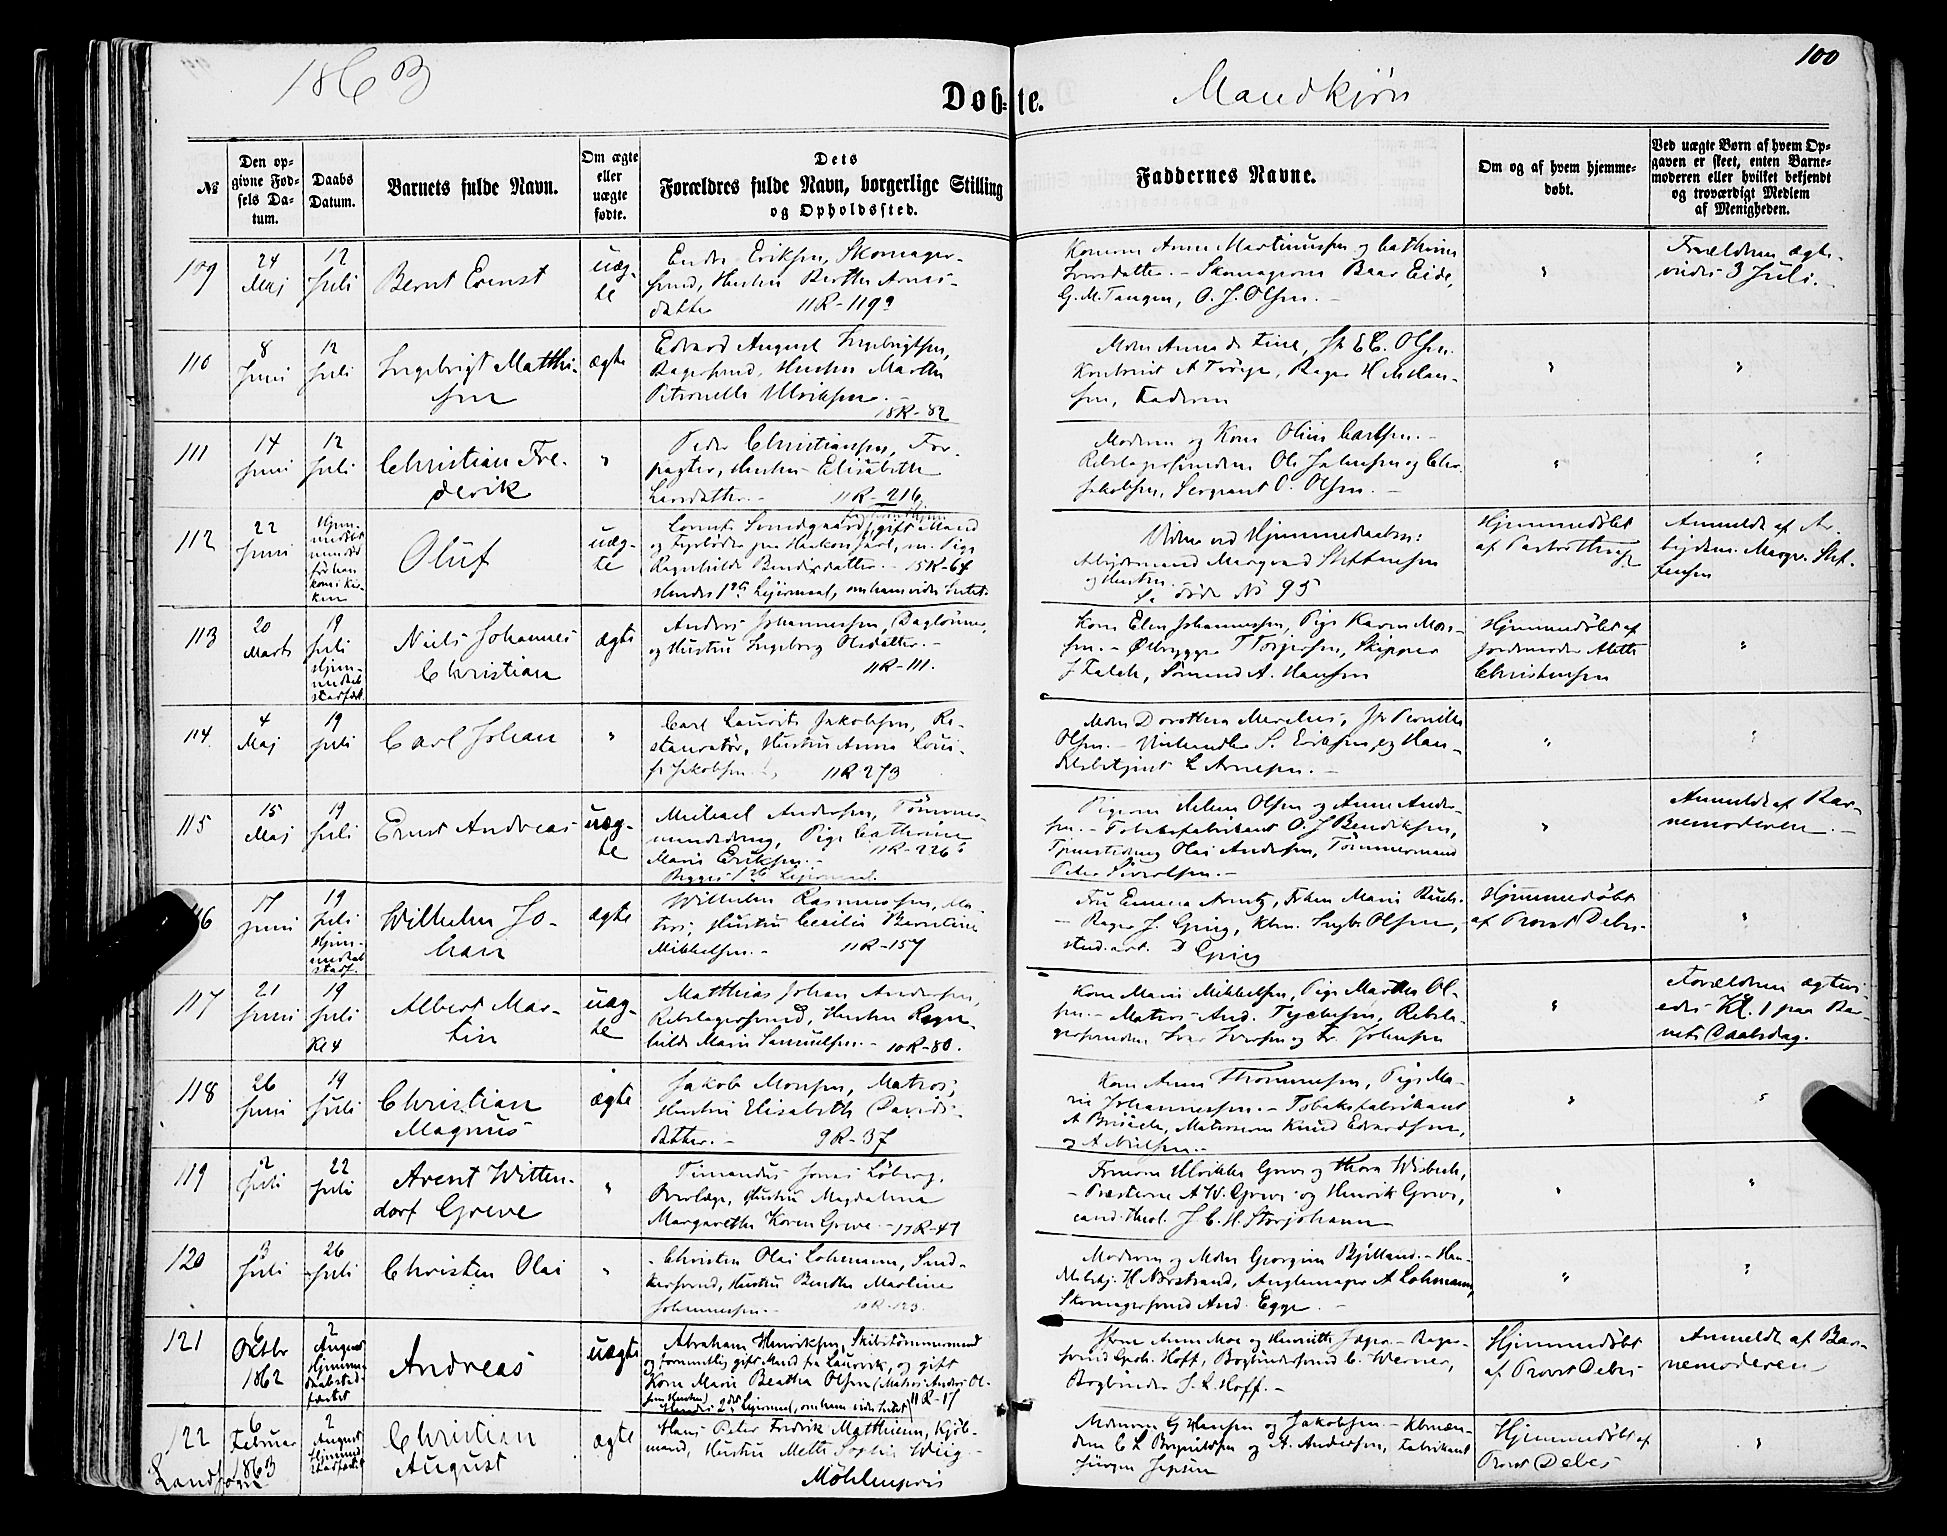 100
1863
Døb-te.
Mandkjøn
№
Den op-
givne Fød-
sels Da-
tum.
Daabs
Datum.
Barnets fulde Navn.
Om ægte
eller
uægte
fødte.
Dets
Forældres fulde Navn, borgerlige Stilling
og Opholdssted.
Faddernes Navne.
Om og af hvem hjemme-
døbt.
Ved uægte Børn af hvem Op-
gaven er skeet, enten Barne-
moderen eller hvilket bekjendt
og troværdigt Medlem
af Menigheden.
109
24
Maj
12
Juli
Bernt Ernst
uæg-
te
Endre Eriksen, Skomager-
svend, Hustru Berthe Arnes-
datter 11R-119
Konerne Anne Martinussen og Cathrine
Iversdatter. - Skomagerne Baar Eide,
G. M. Tangen, O. J. Olsen. -
Forældrene ægte-
viedes 3 Juli. -
110
8
Juni
12
Juli
Ingebrigt Matthi-
sen
ægte
Edvard August Ingebrigtsen,
Bagersvend, Hustru Marthe
Petronelle Ulriksen.
18R-82
Olsen.
Faderen
111
14
Juni
12
Juli
Christian Fre-
derik
"
Peder Christiansen, For-
pagter, Hustru Elisabeth
Larsdatter. - 11R-216
Moderen og Kone Oline Carlsen. -
Rebslagersvendene Ole Johnsen og Chr.
Jakobsen, Sergeant O. Olsen. -
112
22
Juni
Oluf
uæg-
te
gift Mand
og Fyrbøder paa Haakon Jarl, m. Pige
Ragnhilde Bendixdatter. - 15R-64
Hendes 1ste Leiermaal, om hans vides Intet.
Vidner ved Hjemmedaaben:
Arbeidsmand Margrad Steffensen
og Hustru.
Se døde No 95
Hjemmedøbt
af Pastor
Anmeldt af Ar-
beidsm. Margr. Stef-
fensen
113
20
Marts
19
Juli
Hjem-
medaab
stadfæst.
Niels Johannes
Christian
ægte
Anders Johannessen, Daglønner,
og Hustru Ingeborg Olsdatter. -
11R-111.
Kone Elen Johannessen, Pige Karen Mon-
sen. - Ølbrygger T Torgersen, Skipper
J Falch, Sømand A. Hansen
Hjemmedøbt af
Jordemoder Alette
Christensen
114.
4
Maj
19
Juli
Carl Johan
"
Carl Laurits Jakobsen, Re-
stauratør, Hustru Anna Loui-
se Jakobsen. 11R 273
Olsen. - Vinhandler S. Eriksen, og Han-
delsbetjent L Arnesen. -
115
15
Maj
19
Juli
Ernst Andreas
uæg-
te
Michael Andersen, Tømmer-
mandsdreng, Pige Cathrine
Marie Eriksen. - 11R-226
Begges 1ste Leiermaal.
Pigerne Helene Olsen og Anne Ander-
sen. - Tobaksfabrikant O. J Bendiksen,
Tjenestedreng Olai Andersen, Tømmermand
Peter Sivertsen. -
Anmeldt af Bar-
nemoderen. -
116
17
Juni
19
Juli
Hjem-
medaab
stadf.
Wilhelm Jo-
han
ægte
Wilhelm Rasmussen, Ma-
tros, Hustru Cecilie Berntine
Mikkelsen. - 11R-157
Fru Emma Arntz, Frøken Marie Buch.
- Bager J. Grieg, Kbm. Ingbr Olsen,
stud. art. D Grieg
Hjemmedøbt
af Provst Debes.
117
21
Juni
19
Juli
Kl 4
Albert Mar-
tin
uæg-
te
Matthias Johan Andersen,
Rebslagersvend, Hustru Ragn-
hilde Marie Samuelsen. - 10R-80.
Kone Marie Mikkelsen, Pige Marthe Ol-
sen. - Matros And. Tychesen, Rebsla-
gersvendene Iver Iversen og Fr. Johnsen
Forældrene ægtevi-
edes Kl. 1 paa Bar-
nets Daabsdag.
118
26
Juni
19
Juli
Christian
Magnus
ægte
Jakob Monsen, Matros,
Hustru Elisabeth Davids-
datter. - 9R-37
Kone Anne Thommesen, Pige Ma-
rie Johannessen. - Tobaksfabrikant
Matroserne Knud Edvardsen,
og A Nielsen. -
119
2
Juli
22
Juli
Arent Witten-
dorf Greve
"
Timandus Jonas Løberg,
Overlæge, Hustru Magdalena
Margarethe Koren Greve. - 17R-47
Fruerne Ulrikke Greve og Thora Wisbech,
- Præsterne A W. Greve og Henrik Greve,
cand. theol. J. C. H. Storjohann
120
3
Juli
26
Juli
Christen Olai
"
Christen Olai Lohmann, Sned-
kersvend, Hustru Berthe Martine
Johannessen. - 10R-123.
Moderen og Mdm Georgine Bjelland. - Han-
delsbtj. H Nordstrand, Anglemager A Lohmann,
Skomagersvend And. Egge. -
121
6
Oktbr
1862
2
August
Hjemme-
daab stad-
fæstet
Andreas
uægte
Abraham Henriksen, Skibstømmermand
og formentlig gift Mand fra Laurvik, og gift
Kone Marie Beatha Olsen (Matros Anders Ol-
sens Hustru)
Hendes 2det Leiermaal, om hans vides Intet 11R-17
Kone Anne Moe og Henriette Jæger - Bager-
svend Hoff, Bogbindersvend C. Werner,
Bogbinder S. L. Hoff. -
Hjemmedøbt
af Provst Debes
Anmeldt af Bar-
nemoderen
122
Landsogn
6
Februar
1863
2
August
Hjemmed.
stadfæstet
Christian
August
ægte
Hans Peter Fredrik Matthiesen, Kjøb-
mand, Hustru Mette Sophie Wiig. -
Möhlenpris
Mdmerne G Hansen og Jakobsen - Kbmæn-
dene C L Brynildsen og A. Andersen, Fabrikant
Jürgen Jepsen
Hjemmedøbt af
Provst Debes